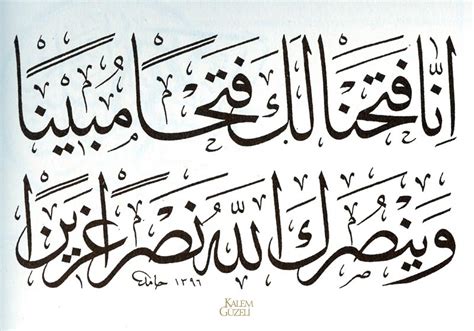 إِنَّا فَتَحْنَا لَكَ فَتْحًا مُبِينًا
وَيَنْصُرَكَ اللَّهُ نَصْرًا عَزِيزًا
حامد ١٣٩٦
KALEM
GÜZELİ